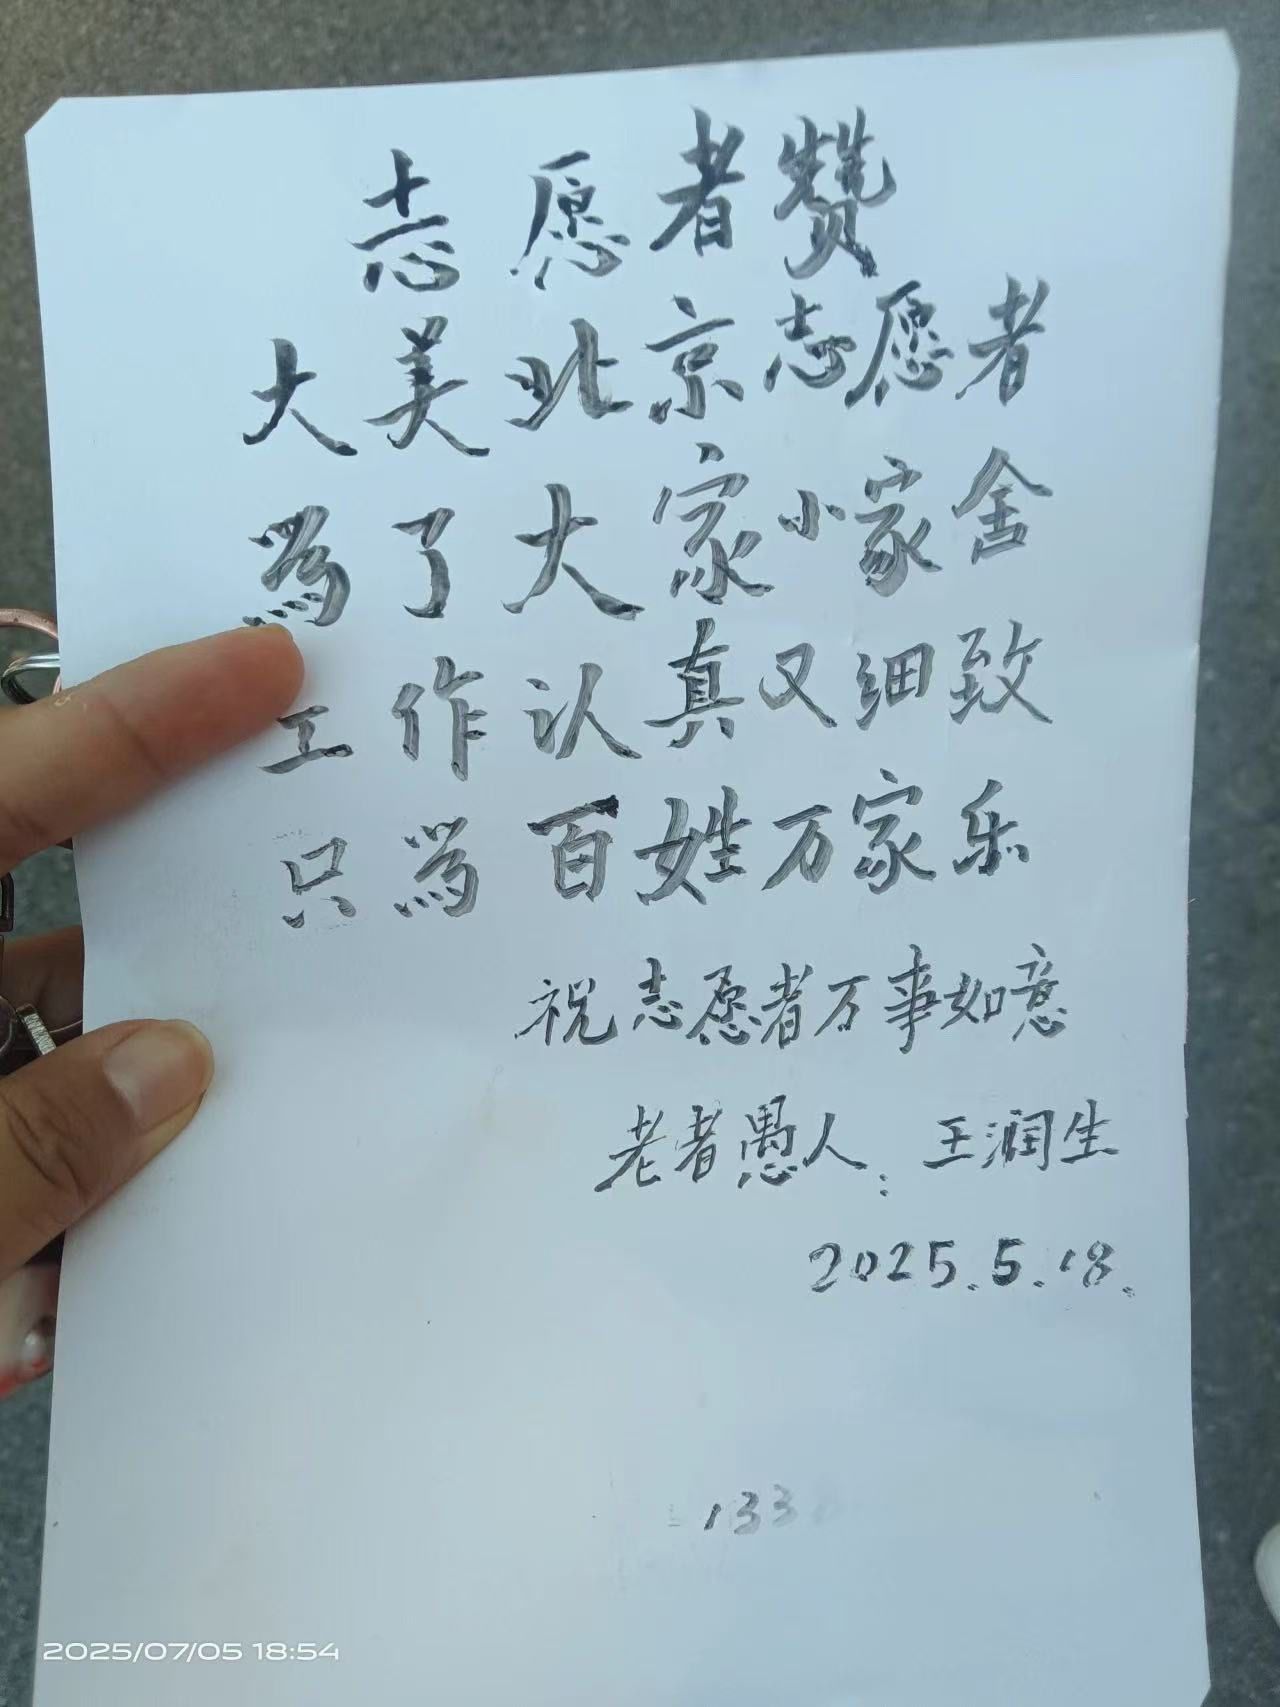 志愿者赞
大美北京志愿者
為了大家小家舍
工作认真又细致
只為百姓万家乐
祝志愿者万事如意
老者愚人:王润生
2025.5.18.
133
2025/07/05 18:54